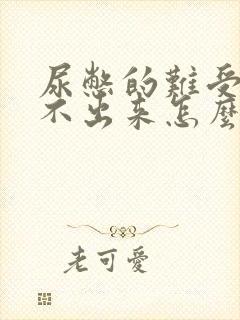 尿憋的難受
不出来怎麼
老可愛